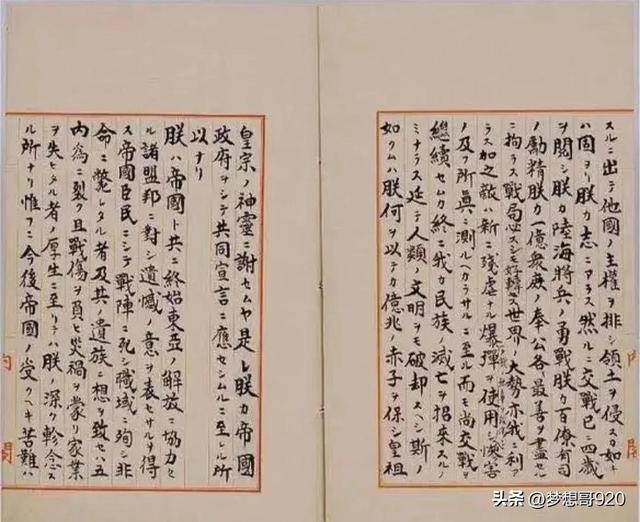 スルニ出テ他國ノ主權ヲ排シ領土ヲ侵スカ如キ
ハ固ヨリ朕カ志ニアラス然ルニ交戰已ニ四歳
ヲ閲シ朕カ陸海將兵ノ勇戰朕カ百僚有司
ノ勵精朕カ一億衆庶ノ奉公各最善ヲ盡セル
ニ拘ラス戰局必スシモ好轉セス世界ノ大勢亦我ニ利ア
ラス加之敵ハ新ニ殘虐ナル爆彈ヲ使用シ慘害
ノ及フ所眞ニ測ルヘカラサルニ至ル而モ尚交戰ヲ
繼續セムカ終ニ我カ民族ノ滅亡ヲ招來スルノ
ミナラス延テ人類ノ文明ヲモ破却スヘシ斯ノ
如クムハ朕何ヲ以テカ億兆ノ赤子ヲ保シ皇祖
皇宗ノ神靈ニ謝セムヤ是レ朕カ帝國
政府ヲシテ共同宣言ニ應セシムルニ至レル所
以ナリ
朕ハ帝國ト共ニ終始東亞ノ解放ニ協力セ
ル諸盟邦ニ對シ遺憾ノ意ヲ表セサルヲ得
ス帝國臣民ニシテ戰陣ニ死シ職域ニ殉シ非
命ニ斃レタル者及其ノ遺族ニ想ヲ致セハ五
内爲ニ裂ク且戰傷ヲ負ヒ災禍ヲ蒙リ家業
ヲ失ヒタル者ノ厚生ニ至リテハ朕ノ深ク軫念ス
ル所ナリ惟フニ今後帝國ノ受クヘキ苦難ハ
内閣
头条 @梦想哥920